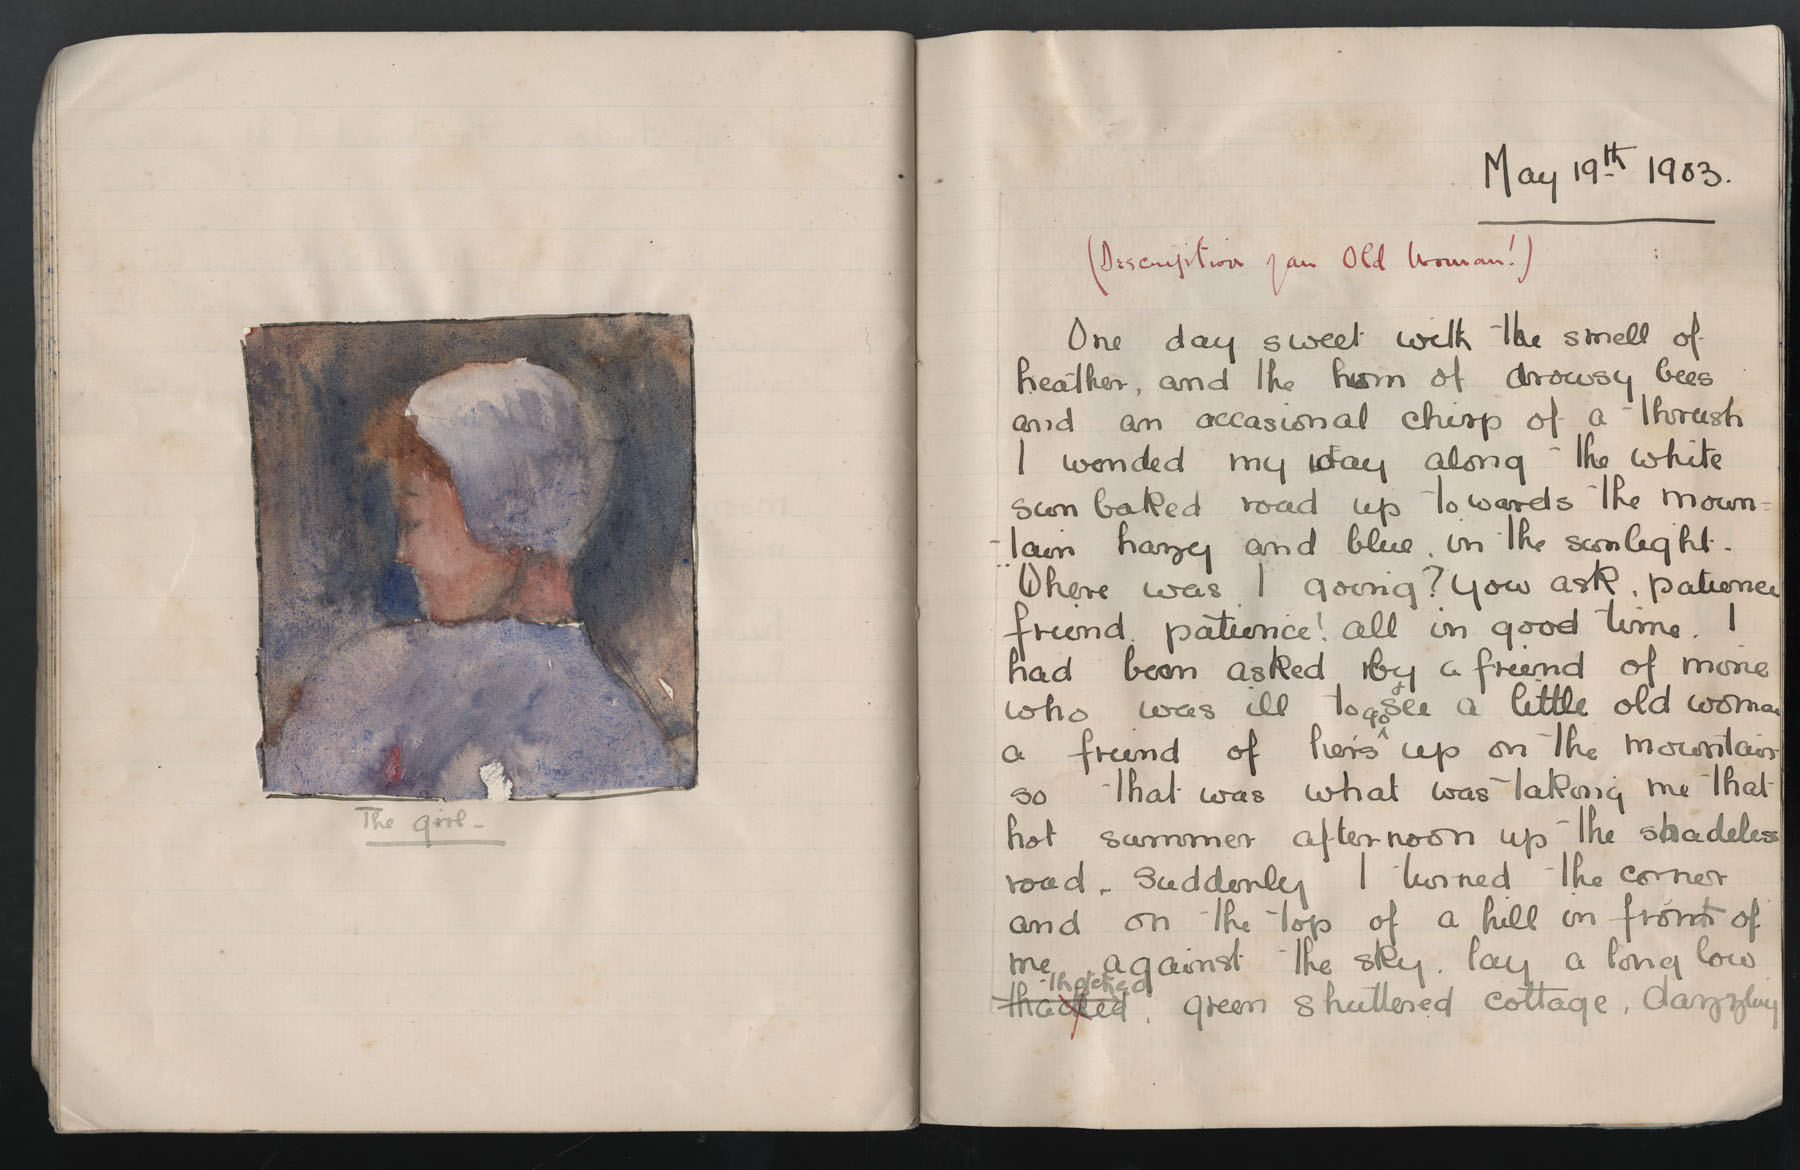 The girl-
May 19th 1903.
(Description of an Old Woman!)
One day sweet with the smell of
heather, and the hum of drowsy bees
and an occasional chirp of a thrush
I wended my way along the white
sun baked road up towards the moun=
tain hazy and blue, in the sunlight.
Where was I going? You ask, patience
friend, patience! all in good time. I
had been asked by a friend of mine
who was ill to go & see a little old woman
a friend of hers up on the mountain
so that was what was taking me that
hot summer afternoon up the shadeless
road. Suddenly I turned the corner
and on the top of a hill in front of
me, against the sky, lay a long low
thatched
thacked, green shuttered cottage, dazzling